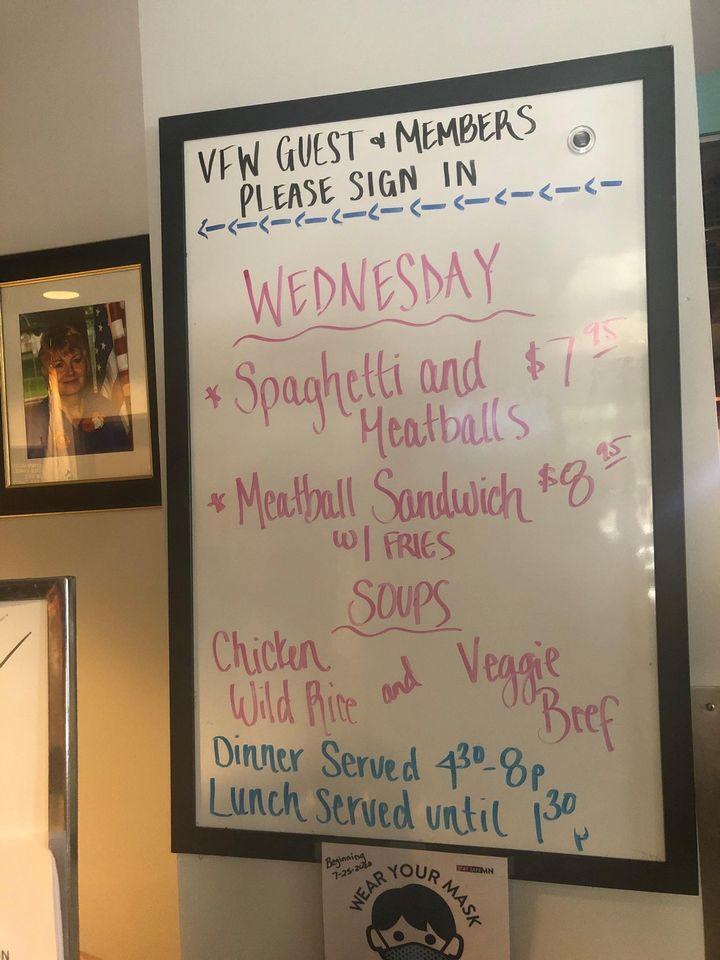 VFW GUEST & MEMBERS
PLEASE SIGN IN
WEDNESDAY
* Spaghetti and $7 95
Meatballs
* Meatball Sandwich $8 95
W/ FRIES
SOUPS
Chicken Wild Rice and Veggie Beef
Dinner Served 4 30 - 8p
Lunch Served until 1 30 p
Beginning
7-25-2020
STAY SAFE MN
WEAR YOUR MASK